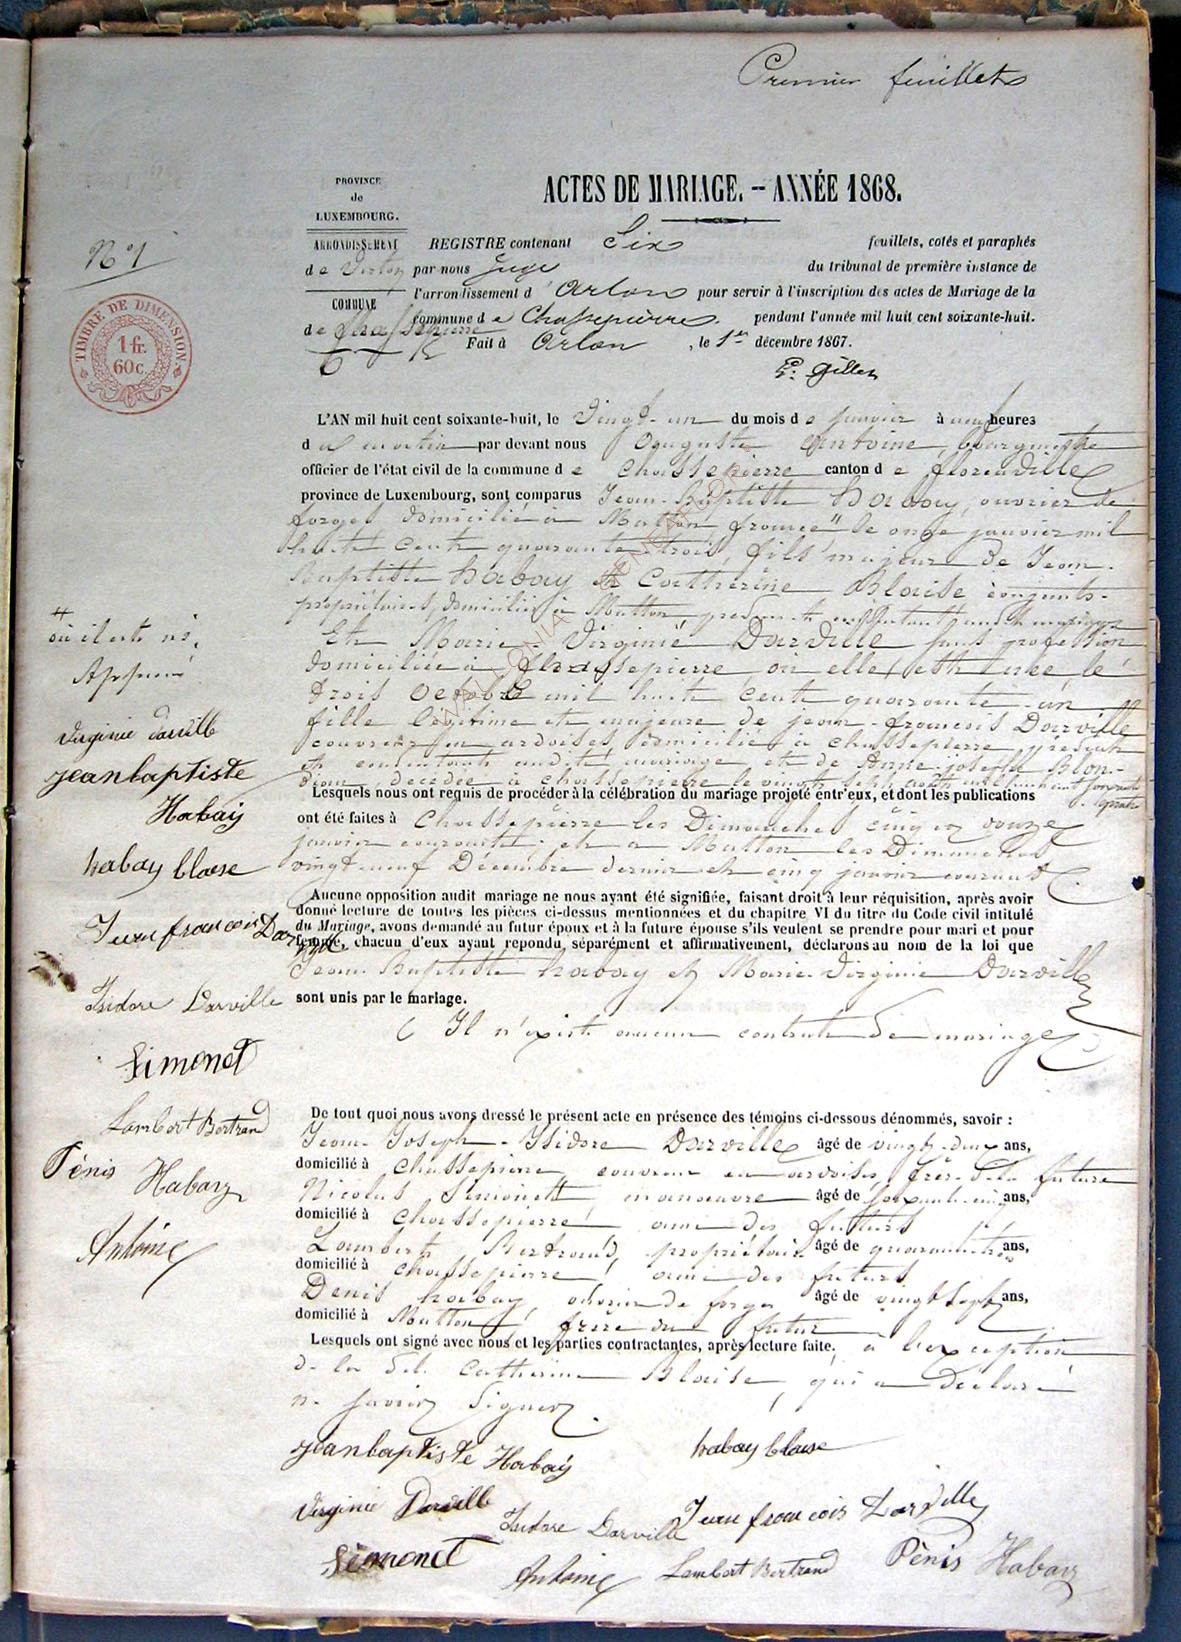 Premier feuillet
PROVINCE
de
LUXEMBOURG.
ARRONDISSEMENT
de Virton
COMMUNE
de Chassepierre
N° 1
TIMBRE DE DIMENSION
1 fr.
60 c.
ACTES DE MARIAGE. — ANNÉE 1868.
REGISTRE contenant Six feuillets, cotés et paraphés
par nous Juge du tribunal de première instance de
l'arrondissement d'Arlon pour servir à l'inscription des actes de Mariage de la
commune de Chassepierre. pendant l'année mil huit cent soixante-huit.
Fait à Arlon, le 1er décembre 1867.
L'AN mil huit cent soixante-huit, le Vingt-un du mois de janvier à neuf heures
du matin par devant nous Auguste Antoine, bourgmestre
officier de l'état civil de la commune de Chassepierre canton de florenville
province de Luxembourg, sont comparus Jean-Baptiste habay, ouvrier de
forges domicilié à Matton france # le onze janvier mil
huit cent quarante trois, fils majeur de Jean-
Baptiste habay et Catherine Blaise conjoints-
propriétaires, domiciliés à Matton
Et Marie-Virginie Darville sans profession
domiciliée à Chassepierre, où elle est née, le
trois octobre mil huit cent quarante-un
fille légitime et majeure de jean-françois Darville
couvreur en ardoises, domicilié à chassepierre présent
et consentant audit mariage et de Anne-joseph Blon-
dion, decédée à chassepierre le vingt sept août mil huit cent soixante
quatre
Lesquels nous ont requis de procéder à la célébration du mariage projeté entr'eux, et dont les publications
ont été faites à Chassepierre les Dimanches cinq et douze
janvier courant; et à Matton les Dimanches
vingt-neuf Décembre dernier et cinq janvier courant.
Aucune opposition audit mariage ne nous ayant été signifiée, faisant droit à leur réquisition, après avoir
donné lecture de toutes les pièces ci-dessus mentionnées et du chapitre VI du titre du Code civil intitulé
du Mariage, avons demandé au futur époux et à la future épouse s'ils veulent se prendre pour mari et pour
femme, chacun d'eux ayant repondu séparément et affirmativement, déclarons au nom de la loi que
Jean-Baptiste habay et Marie-Virginie Darville
sont unis par le mariage.
Il n'existe aucun contrat de mariage
De tout quoi nous avons dressé le présent acte en présence des témoins ci-dessous dénommés, savoir :
Jean-Joseph-Isidore Darville âgé de vingt-deux ans,
domicilié à Chassepierre, couvreur en ardoises, frère de la future
Nicolas Simonett, manoeuvre âgé de soixante-cinq ans,
domicilié à Chassepierre ami des futurs
Lambert Bertrand, propriétaire âgé de quarante-trois ans,
domicilié à Chassepierre, ami des futurs
Denis habay, ouvrier de forges âgé de vingt sept ans,
domicilié à Matton, frère du futur
Lesquels ont signé avec nous et les parties contractantes, après lecture faite. à l'exception
de la dte Catherine Blaise, qui a déclaré
ne savoir signer.
jean baptiste Habay
habay blaise
Virginie Darville
Isidore Darville
Jean françois Darville
Simonet
Antoine
Lambert Bertrand
Dénis Habay
#
où il est né.
Approuvé
Virginie Darville
jean baptiste
Habay
habay blaise
Jean francois Darville
Isidore Darville
Simonet
Lambert Bertrand
Dénis Habay
Antoine